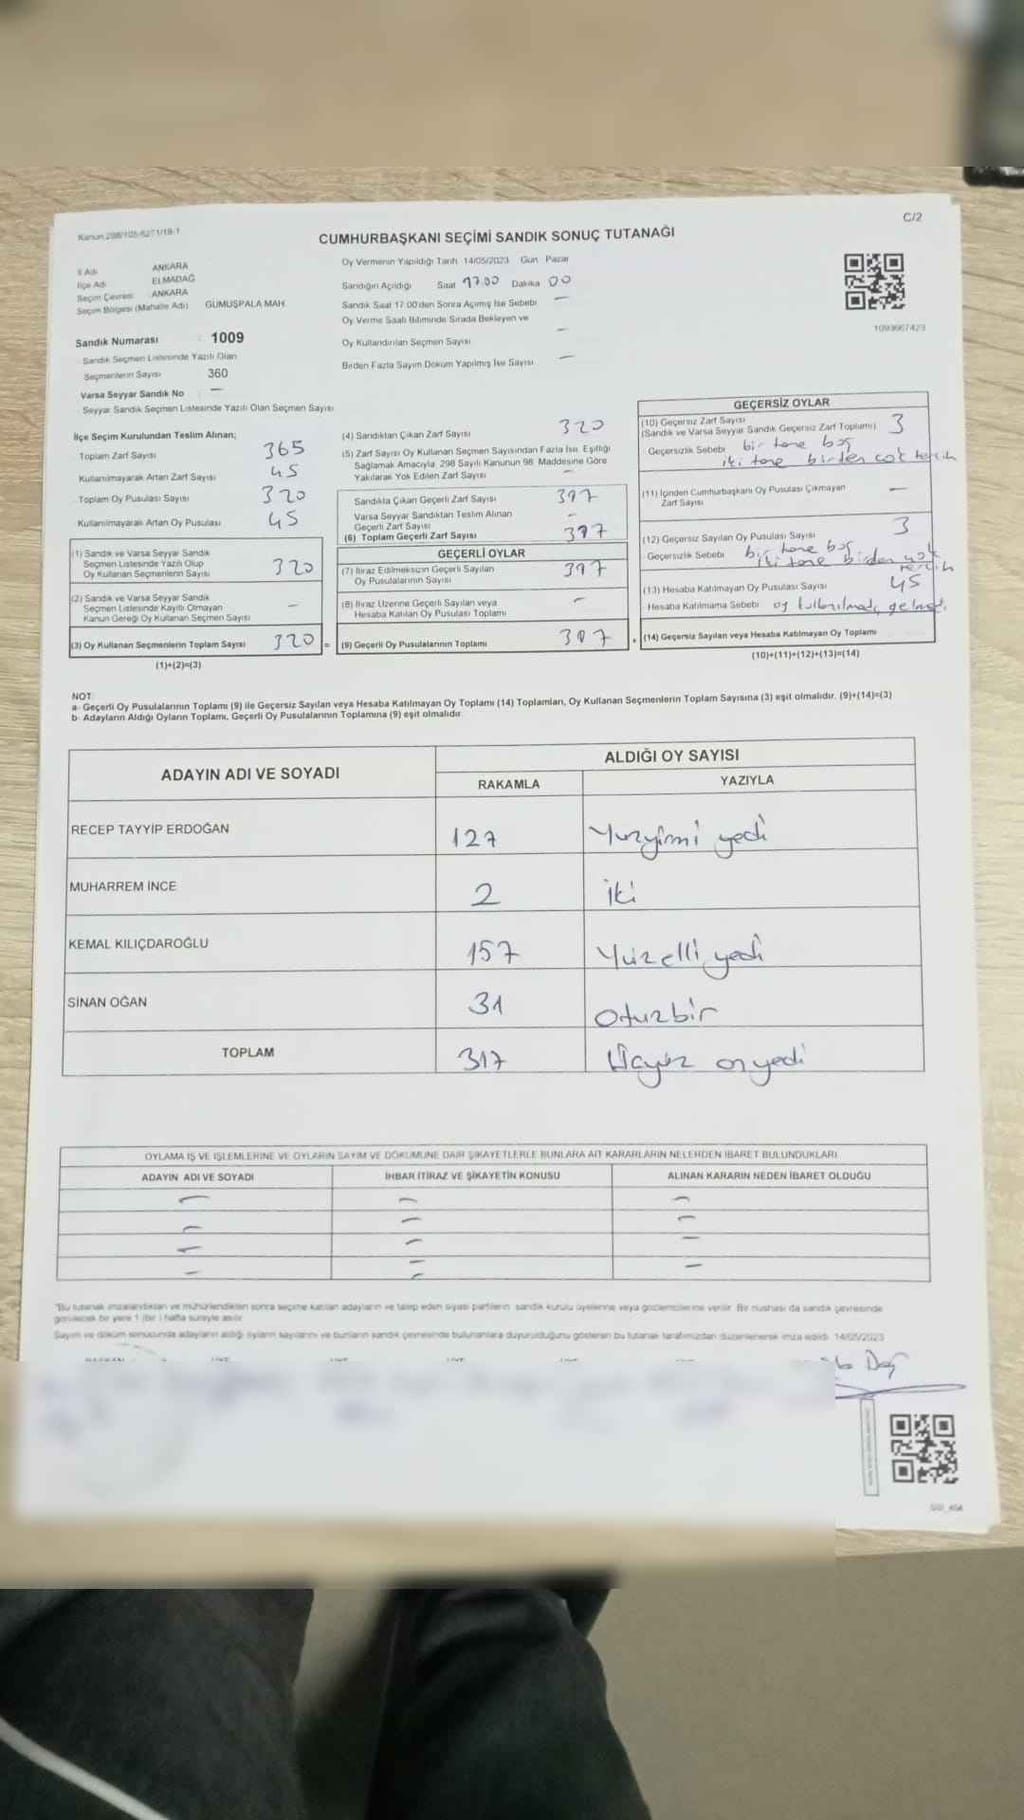 C/2
CUMHURBAŞKANI SEÇİMİ SANDIK SONUÇ TUTANAĞI
İl Adı ANKARA
İlçe Adı ELMADAĞ
Seçim Çevresi ANKARA
Seçim Bölgesi (Mahalle Adı) GÜMÜŞPALA MAH.
Sandık Numarası 1009
Sandık Seçmen Listesinde Yazılı Olan
Seçmenlerin Sayısı 360
Varsa Seyyar Sandık No —
Seyyar Sandık Seçmen Listesinde Yazılı Olan Seçmen Sayısı
Oy Vermenin Yapıldığı Tarih 14/05/2023 Gün Pazar
Sandığın Açıldığı Saat 17.00 Dakika 00
Sandık Saat 17:00'den Sonra Açılmış İse Sebebi —
Oy Verme Saati Bitiminde Sırada Bekleyen ve
Oy Kullandırılan Seçmen Sayısı —
Birden Fazla Sayım Döküm Yapılmış İse Sayısı —
1093667423
İlçe Seçim Kurulundan Teslim Alınan;
Toplam Zarf Sayısı 365
Kullanılmayarak Artan Zarf Sayısı 45
Toplam Oy Pusulası Sayısı 320
Kullanılmayarak Artan Oy Pusulası 45
(1) Sandık ve Varsa Seyyar Sandık
Seçmen Listesinde Yazılı Olup
Oy Kullanan Seçmenlerin Sayısı 320
(2) Sandık ve Varsa Seyyar Sandık
Seçmen Listesinde Kayıtlı Olmayan
Kanun Gereği Oy Kullanan Seçmen Sayısı —
(3) Oy Kullanan Seçmenlerin Toplam Sayısı 320
(1)+(2)=(3)
(4) Sandıktan Çıkan Zarf Sayısı 320
(5) Zarf Sayısı Oy Kullanan Seçmen Sayısından Fazla İse Eşitliği
Sağlamak Amacıyla, 298 Sayılı Kanunun 98. Maddesine Göre
Yakılarak Yok Edilen Zarf Sayısı —
Sandıkta Çıkan Geçerli Zarf Sayısı 317
Varsa Seyyar Sandıktan Teslim Alınan
Geçerli Zarf Sayısı —
(6) Toplam Geçerli Zarf Sayısı 317
GEÇERLİ OYLAR
(7) İtiraz Edilmeksizin Geçerli Sayılan
Oy Pusulalarının Sayısı 317
(8) İtiraz Üzerine Geçerli Sayılan veya
Hesaba Katılan Oy Pusulası Toplamı —
(9) Geçerli Oy Pusulalarının Toplamı 317
GEÇERSİZ OYLAR
(10) Geçersiz Zarf Sayısı
(Sandık ve Varsa Seyyar Sandık Geçersiz Zarf Toplamı) 3
Geçersizlik Sebebi bir tane boş
iki tane birden çok tercih
(11) İçinden Cumhurbaşkanı Oy Pusulası Çıkmayan
Zarf Sayısı —
(12) Geçersiz Sayılan Oy Pusulası Sayısı 3
Geçersizlik Sebebi bir tane boş
iki tane birden çok
tercih
(13) Hesaba Katılmayan Oy Pusulası Sayısı 45
Hesaba Katılmama Sebebi oy kullanılmadı
(14) Geçersiz Sayılan veya Hesaba Katılmayan Oy Toplamı
(10)+(11)+(12)+(13)=(14)
NOT:
a- Geçerli Oy Pusulalarının Toplamı (9) ile Geçersiz Sayılan veya Hesaba Katılmayan Oy Toplamı (14) Toplamları, Oy Kullanan Seçmenlerin Toplam Sayısına (3) eşit olmalıdır. (9)+(14)=(3)
b- Adayların Aldığı Oyların Toplamı, Geçerli Oy Pusulalarının Toplamına (9) eşit olmalıdır.
ADAYIN ADI VE SOYADI
ALDIĞI OY SAYISI
RAKAMLA YAZIYLA
RECEP TAYYİP ERDOĞAN 127 Yüzyirmi yedi
MUHARREM İNCE 2 İki
KEMAL KILIÇDAROĞLU 157 Yüzelli yedi
SİNAN OĞAN 31 Otuzbir
TOPLAM 317 Üçyüz onyedi
OYLAMA İŞ VE İŞLEMLERİNE VE OYLARIN SAYIM VE DÖKÜMÜNE DAİR ŞİKAYETLERLE BUNLARA AİT KARARLARIN NELERDEN İBARET BULUNDUKLARI
ADAYIN ADI VE SOYADI İHBAR İTİRAZ VE ŞİKAYETİN KONUSU ALINAN KARARIN NEDEN İBARET OLDUĞU
— — —
— — —
— — —
— — —
"Bu tutanak imzalandıktan ve mühürlendikten sonra seçime katılan adayların ve talep eden siyasi partilerin sandık kurulu üyelerine veya gözlemcilerine verilir. Bir nüshası da sandık çevresinde
görülecek bir yere 1 (bir) hafta süreyle asılır.
Sayım ve döküm sonucunda adayların aldığı oyların sayılarını ve bunların sandık çevresinde bulunanlara duyurulduğunu gösteren bu tutanak tarafımızdan düzenlenerek imza edildi. 14/05/2023